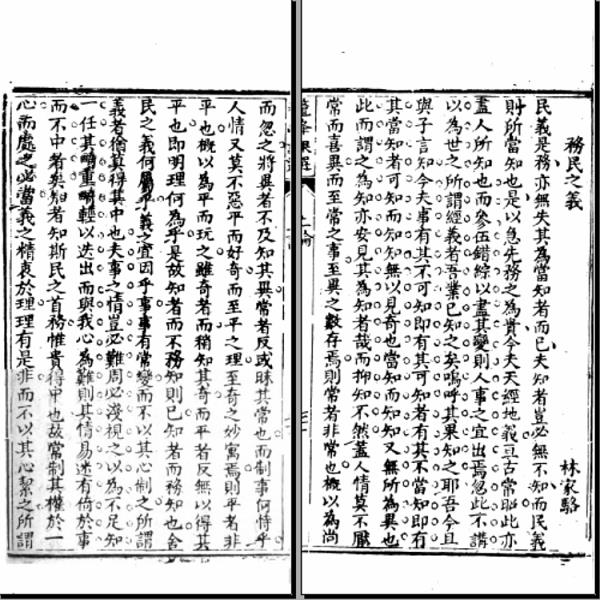 務民之義
林家駱
民義是務亦無失其為當知者而已夫知者豈必無不知而民義
則所當知也是以急先務之為貴今夫天經地義亘古常昭此亦
盡人所知也而參伍錯綜以盡其變則人事之宜出焉忽此不講
以為世之所謂經義者吾業已知之矣嗚呼其果知之耶吾今且
與子言知今夫事有其不可知即有其可知者有其不當知即有
其當知者可知而知知無以見奇也當知而知知又無所為異也
此而謂之為知亦安見其為知者哉而抑知不然蓋人情莫不厭
常而喜異而至常之事至異之數存焉則常者非常也概以為尚
而忽之將異者不及知其異常者反或昧其常也而制事何恃乎
人情又莫不惡平而好奇而至平之理至奇之妙寓焉則平者非
平也概以為平而玩之雖奇者而稍知其奇而平者反無以得其
平也即明理何為乎是故知者而不務知則已知者而務知也舍
民之義何屬乎義之宜因乎事事有常變而不以其心制之所謂
義者倘莫得其中也夫事之情豈必難周必淺視之以為不足知
一任其畸重畸輕以迭出而與我心為難則其情易迷有倚於事
而不中者矣知者知斯民之首務惟貴得中也故常制其權於一
心而處之必當義之精衷於理理有是非而不以其心絜之所謂